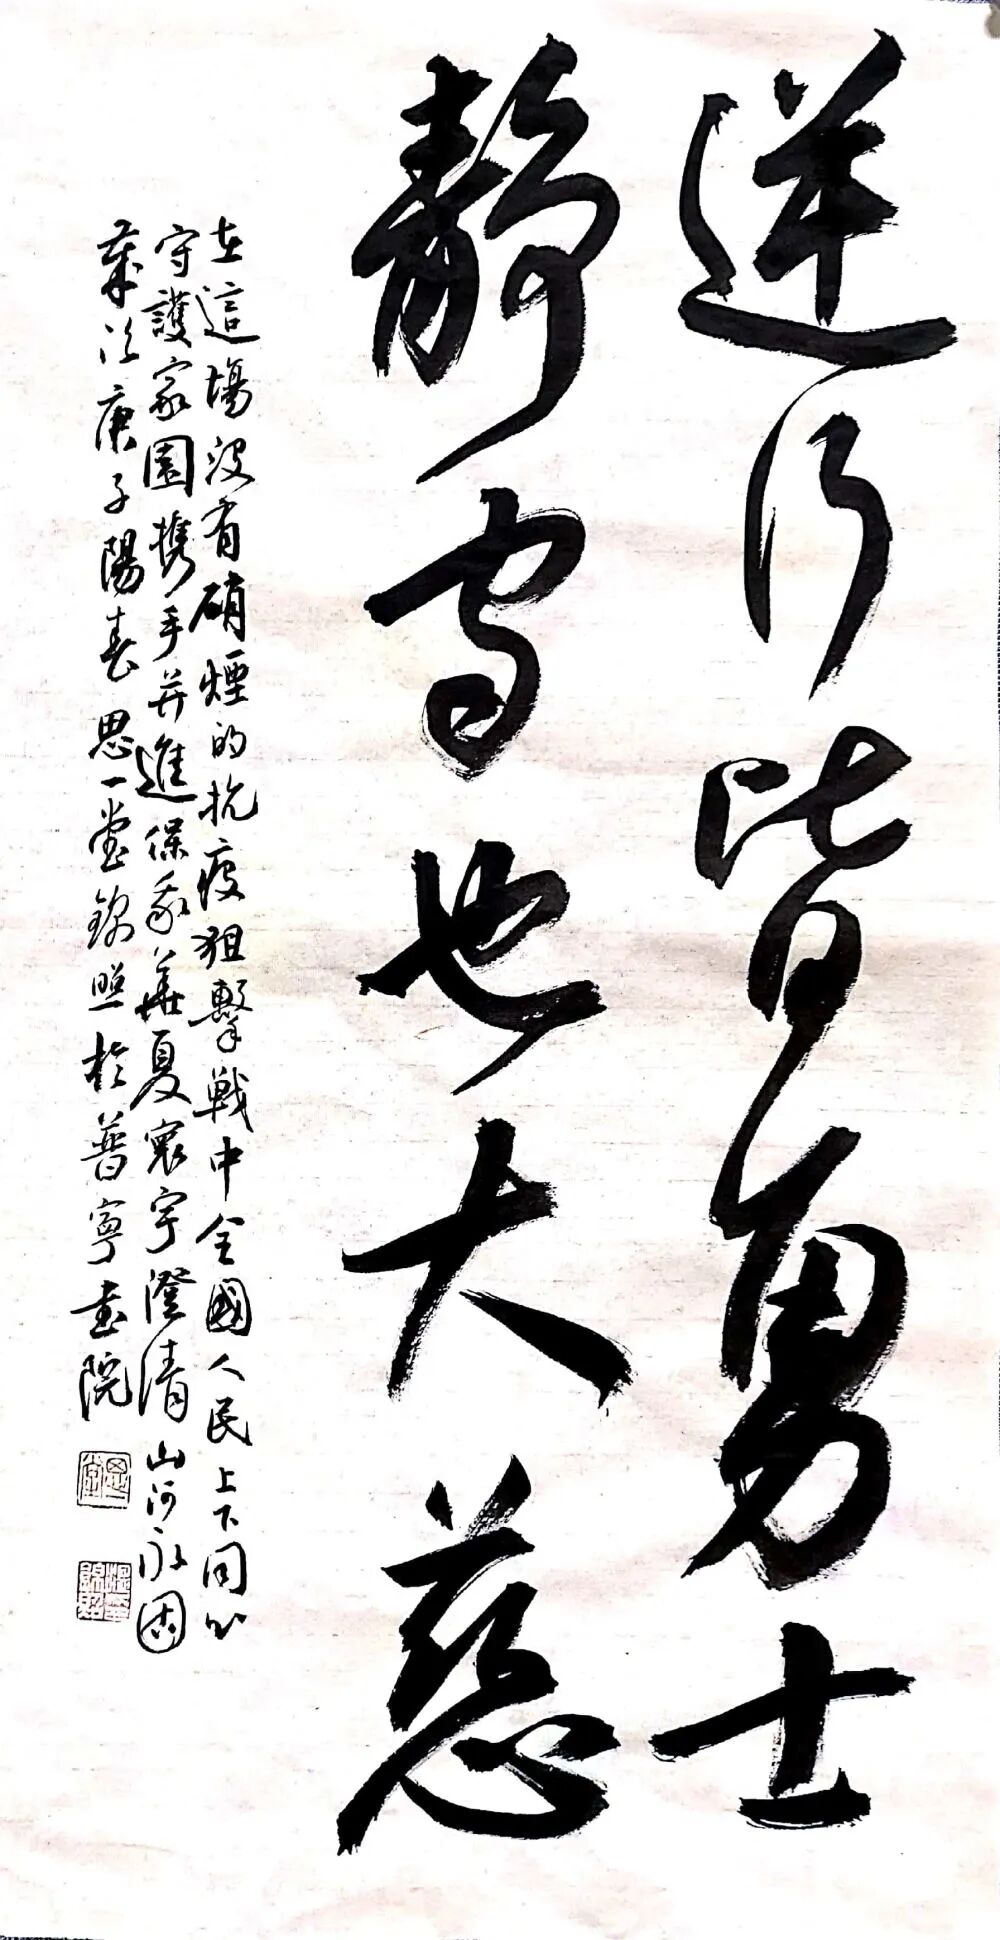 逆行皆勇士
靜守也大慈
在這場沒有硝煙的抗疫狙擊戰中全國人民上下同心
守護家園攜手并進保我華夏寰宇澄清山河永固
歲次庚子陽春思一堂錦照於普寧書院